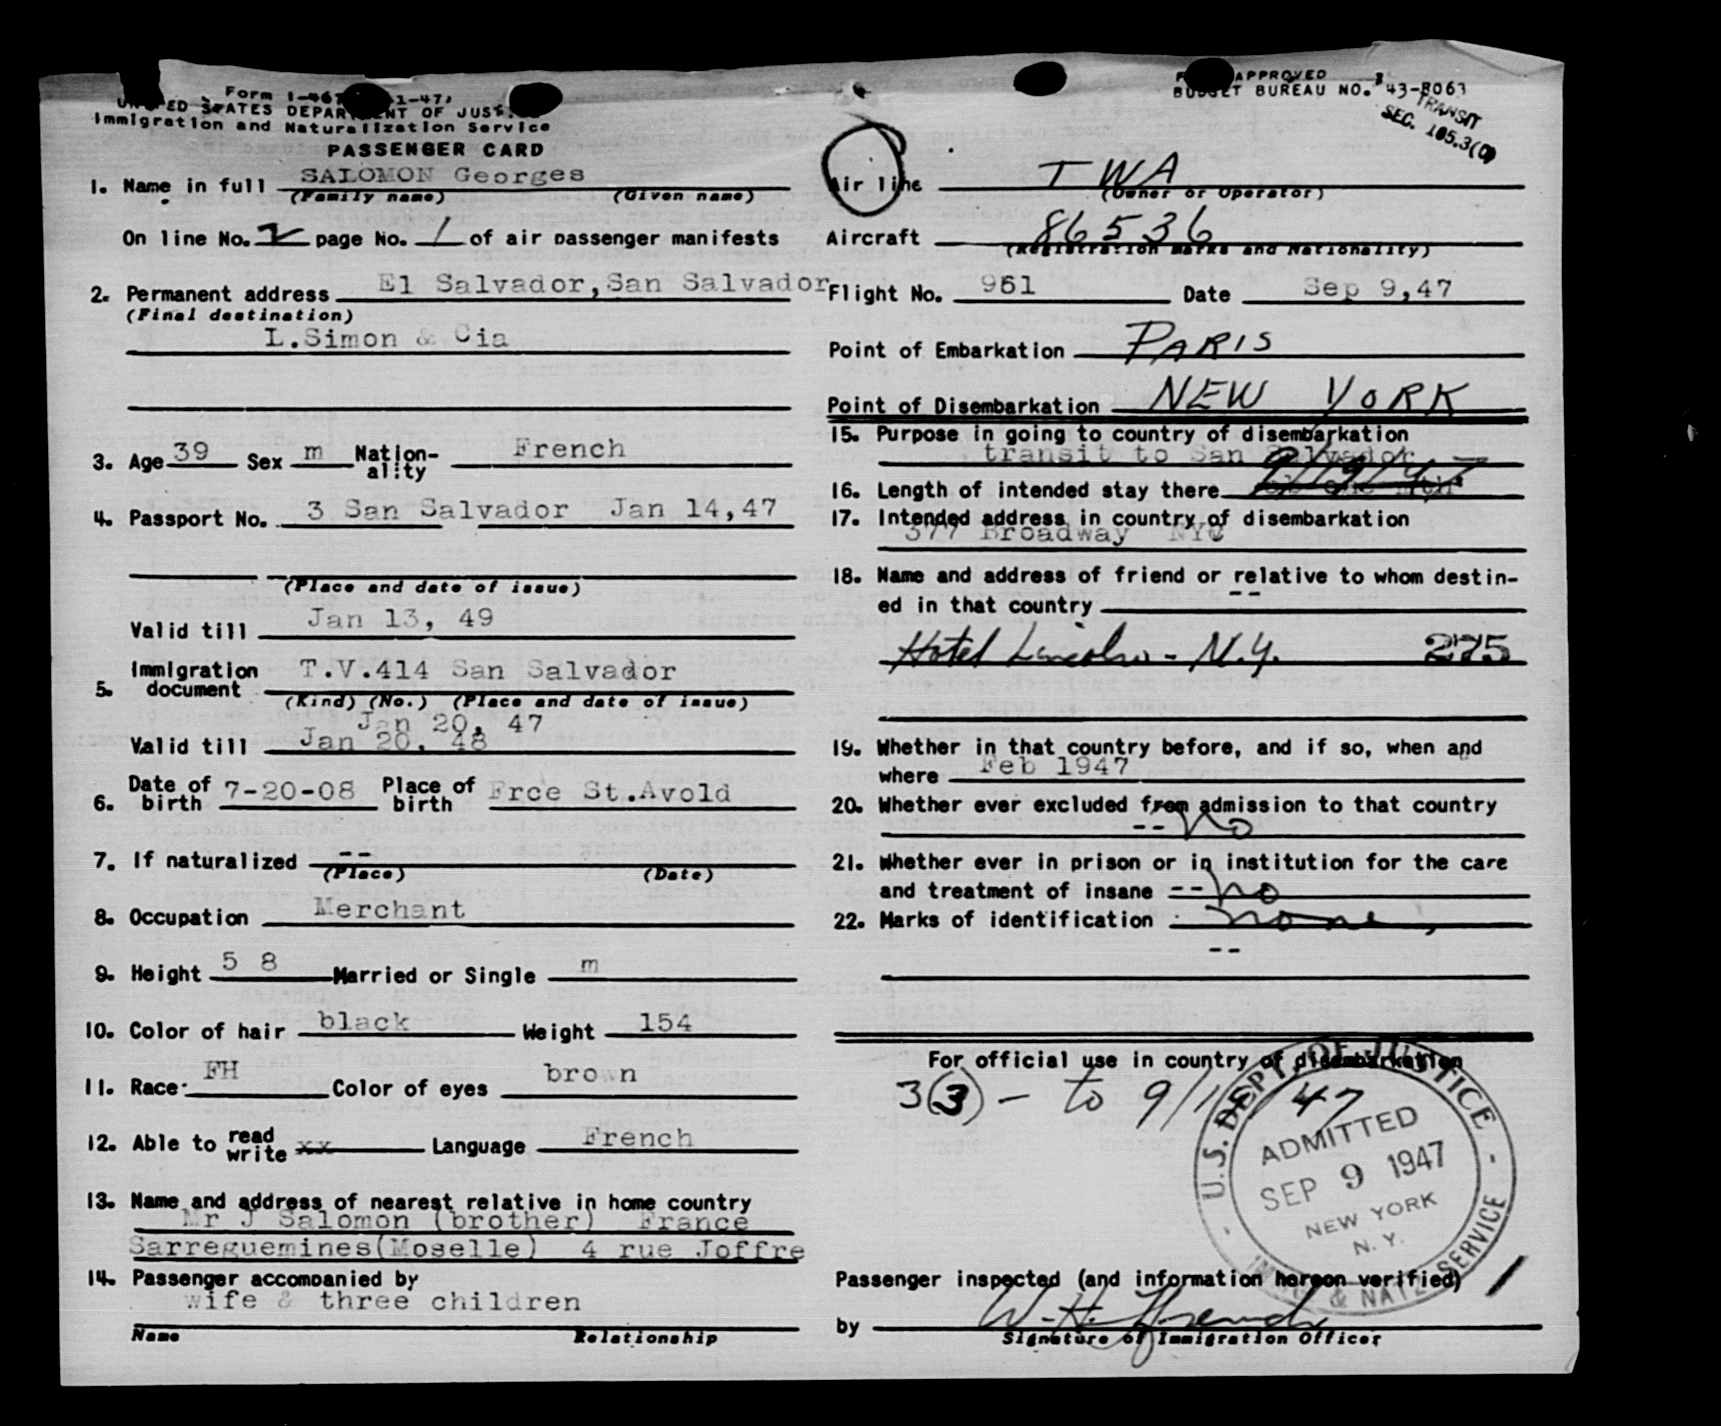 Form I-467 1-47)
UNITED STATES DEPARTMENT OF JUSTICE
Immigration and Naturalization Service
PASSENGER CARD
1. Name in full SALOMON Georges
(Family name) (Given name)
On line No. 2 page No. 1 of air passenger manifests
2. Permanent address El Salvador, San Salvador
(Final destination)
L.Simon & Cia
3. Age 39 Sex m Nation-ality French
4. Passport No. 3 San Salvador Jan 14,47
(Place and date of issue)
Valid till Jan 13, 49
5. Immigration document T.V.414 San Salvador
(Kind) (No.) (Place and date of issue)
Jan 20, 47
Valid till Jan 20, 48
6. Date of birth 7-20-08 Place of birth Frce St.Avold
7. If naturalized --
(Place) (Date)
8. Occupation Merchant
9. Height 5 8 Married or Single m
10. Color of hair black Weight 154
11. Race FH Color of eyes brown
12. Able to read write xx Language French
13. Name and address of nearest relative in home country
Mr J Salomon (brother) France
Sarreguemines(Moselle) 4 rue Joffre
14. Passenger accompanied by
wife & three children
Name Relationship
APPROVED
BUDGET BUREAU NO. 43-R063
TRANSIT
SEC. 105.3(C)
Air line TWA
(Owner or Operator)
Aircraft 86536
(Registration marks and Nationality)
Flight No. 961 Date Sep 9,47
Point of Embarkation PARIS
Point of Disembarkation NEW YORK
15. Purpose in going to country of disembarkation
transit to San Salvador
16. Length of intended stay there 9/19/47
17. Intended address in country of disembarkation
377 Broadway NYC
18. Name and address of friend or relative to whom destin-
ed in that country --
Hotel Lincoln - N.Y. 275
19. Whether in that country before, and if so, when and
where Feb 1947
20. Whether ever excluded from admission to that country
-- No
21. Whether ever in prison or in institution for the care
and treatment of insane -- no
22. Marks of identification none
--
For official use in country of disembarkation
3(3) - to 9/19/47
U.S. DEPT. OF JUSTICE
ADMITTED
SEP 9 1947
NEW YORK
N. Y.
IMMIG. & NATZ. SERVICE
Passenger inspected (and information hereon verified)
by W. H. French
Signature of Immigration Officer